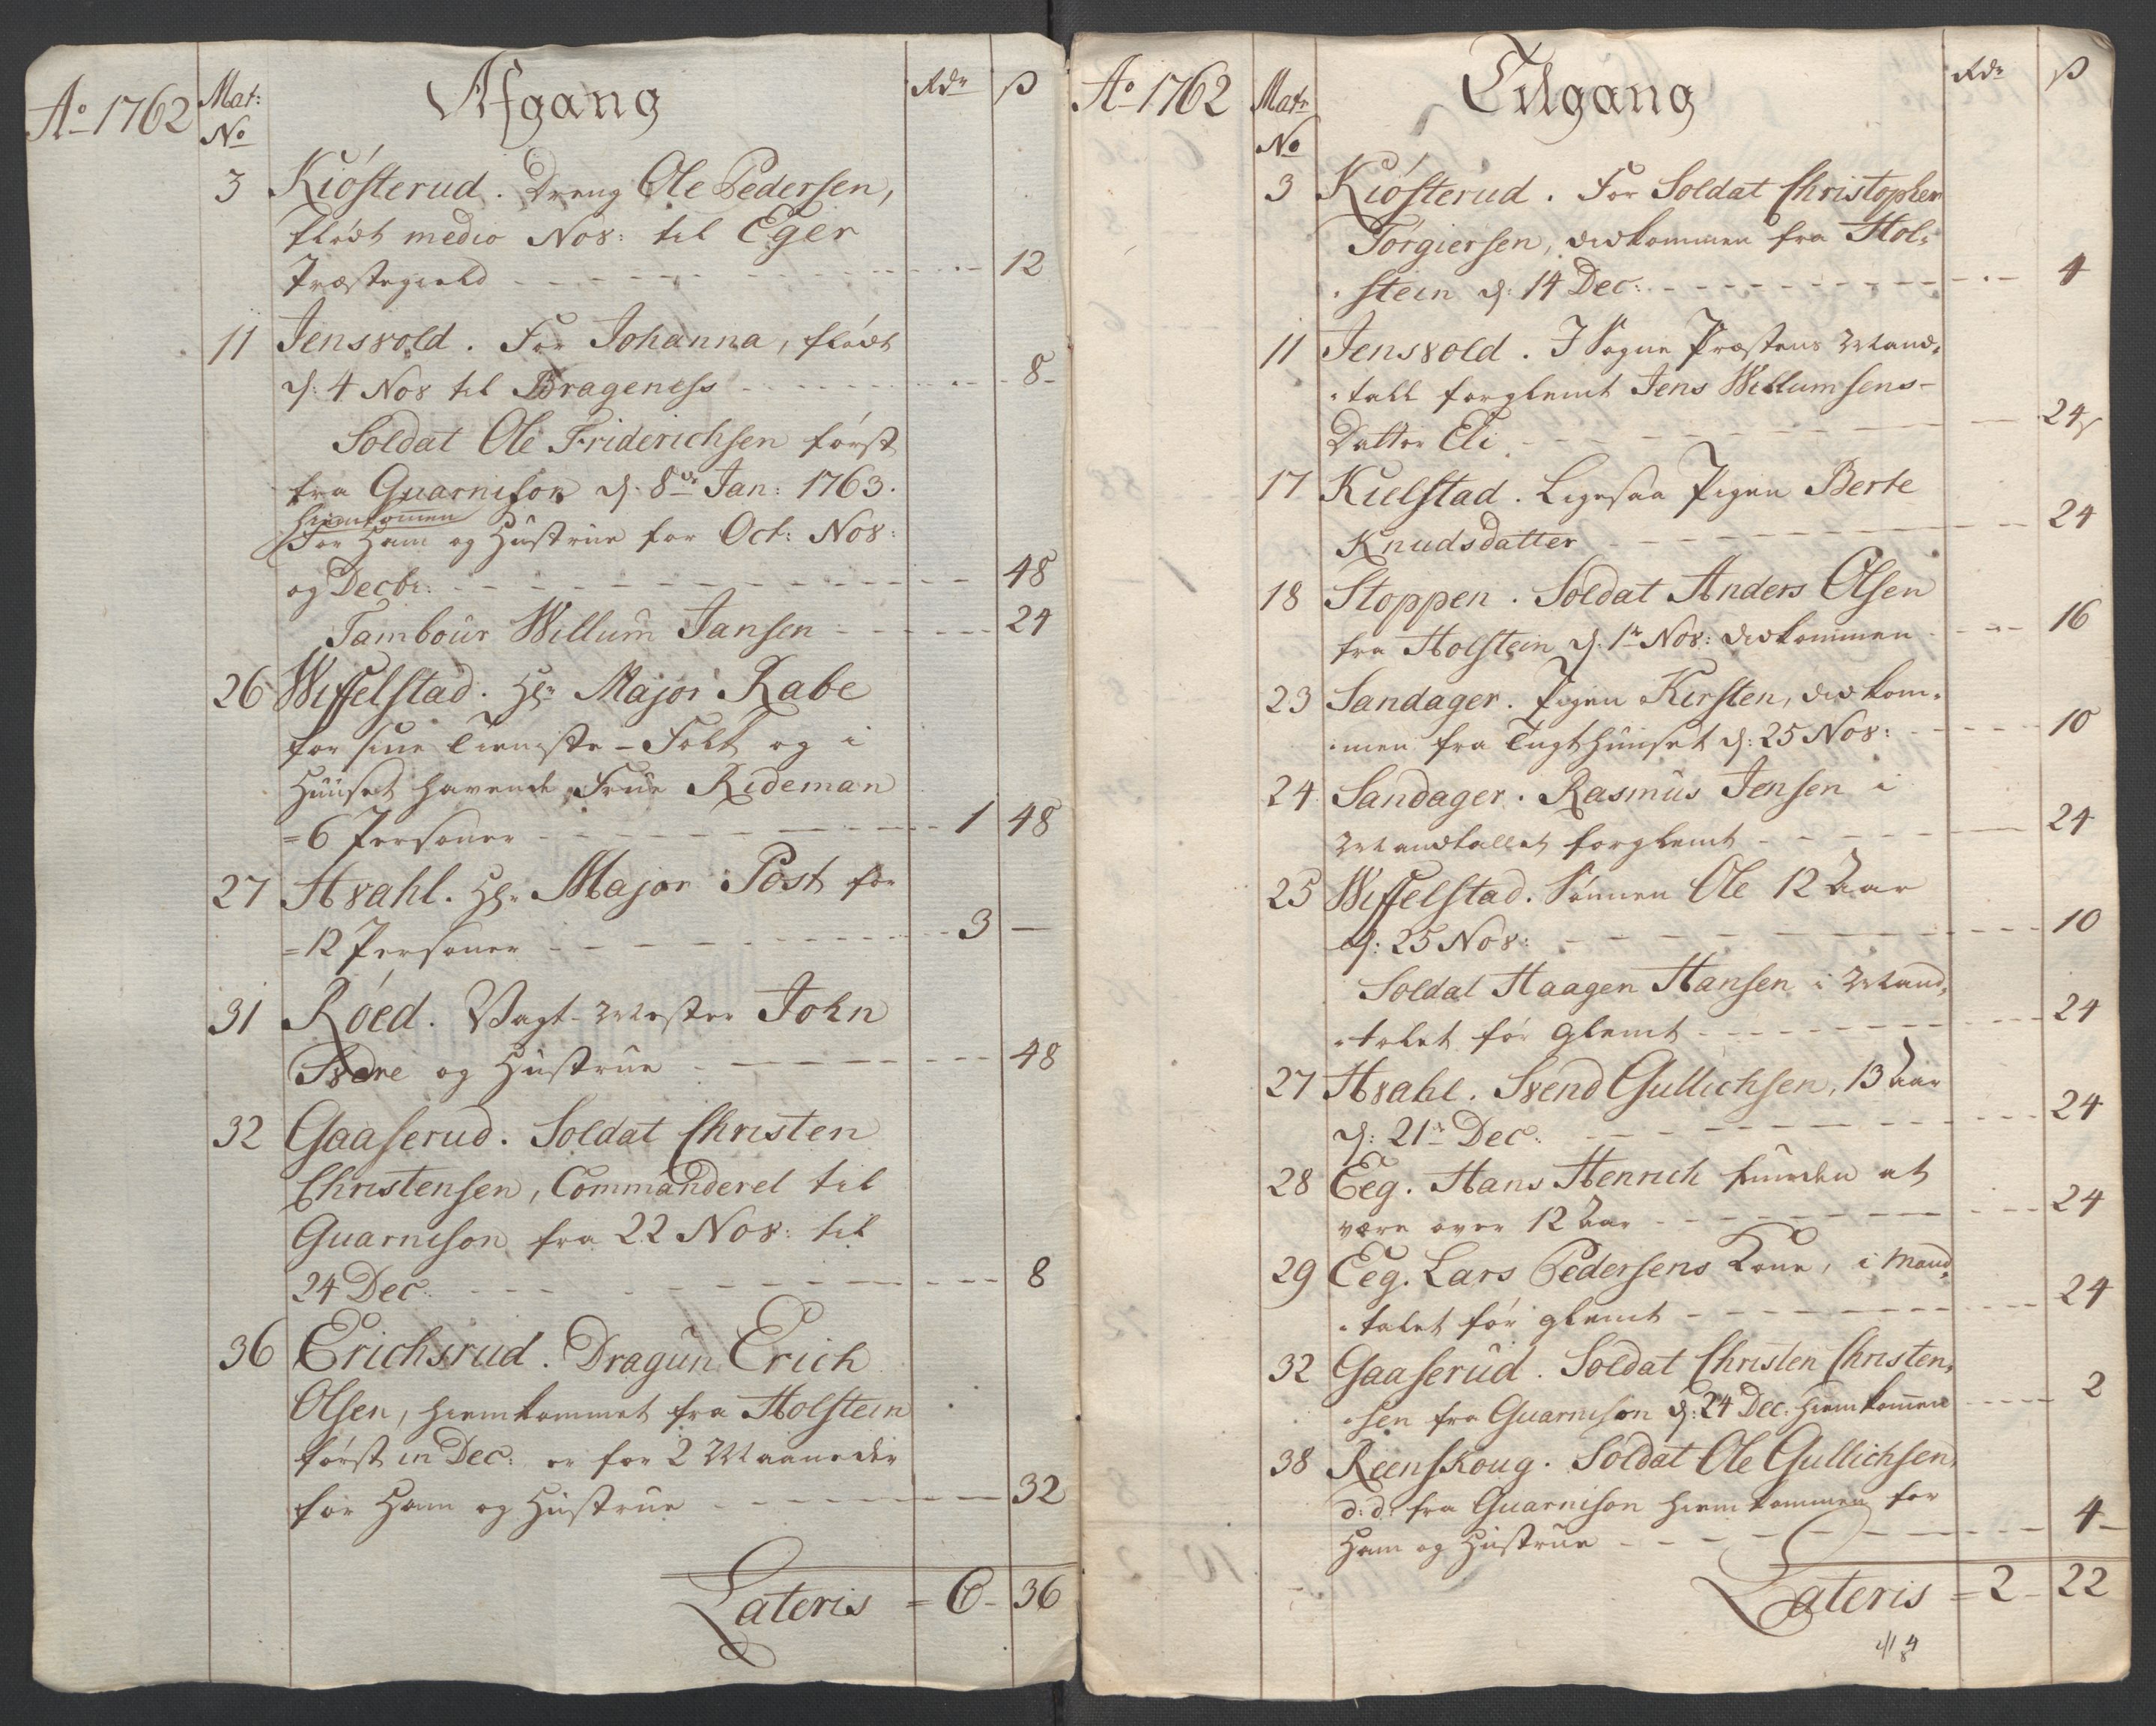 Ao 1762
Mat:
No
Afgang
Rdr
ß
3 Kiósterud. Dreng Ole Pedersen,
flódt medio Nov: til Eger
Præstegield - - - 12
11 Jensvold. For Johanna, flódt
d: 4 Nov til Brageness - - - 8-
Soldat Ole Friderichsen fórst
fra Guarnison d. 8de Jan: 1763.
hiemkommen
For Ham og Hustrue for Oct: Nov:
og Decbr: - - - 48
Tambour Willum Jansen - - - 24
26 Wiffelstad. Hr Major Rabe
for sine Tieniste-Folk og i
Huuset havende Frue Rideman
=6 Personer - - - 1 48
27 Hvahl. Hr Major Post for
=12 Personer - - - 3 —
31 Róed. Vagt-Mester John
og Hustrue - - - 48
32 Gaaserud. Soldat Christen
Christensen, Commanderet til
Guarnison fra 22 Nov: til
24 Dec: - - - 8
36 Erichsrud. Dragun Erich
Olsen, hiemkommet fra Holsten
fórst in Dec: er for 2 Maaneder
for Ham og Hustrue - - - 32
Lateris = 6- 36
Ao 1762
Matr
No
Tilgang
Rdr
ß
3 Kiósterud. For Soldat Christopher
Torgiersen, kommen fra Hol-
-stein d: 14 Dec: - - - 4
11 Jensvold. I Sogne Præstens Mand-
-tall forglemt Jens Willumsens-
Datter Eli - - - 24
17 Kielstad. Ligesaa Pigen Berte
Knudsdatter - - - 24
18 Stoppen. Soldat Anders Olsen
fra Holstein d. 1te Nov: kommen - - - 16
23 Sandager. Pigen Kirsten, kom-
-men fra Tugthuuset d: 25 Nov: - - - 10
24 Sandager. Rasmus Jensen i
Mandtallet forglemt - - - 24
25 Wiffelstad. Sónnen Ole 12 Aar
d: 25 Nov: - - - 10
Soldat Haagen Hansen i Mand-
-talet for glemt - - - 24
27 Hvahl. Svend Gullichsen, 13 Aar
d: 21de Dec: - - - 24
28 Eeg. Hans Henrich funden at
være over 12 Aar - - - 24
29 Eeg. Lars Pedersens Kone, i Mand-
-talet fór glemt - - - 24
32 Gaaserud. Soldat Christen Christen-
-sen fra Guarnison d: 24 Dec: hiemkommen - - - 2
38 Reenskoug. Soldat Ole Gullichsen,
d: d: fra Guarnison hiemkommen for
Ham og Hustrue - - - 4-
Lateris = 2- 22